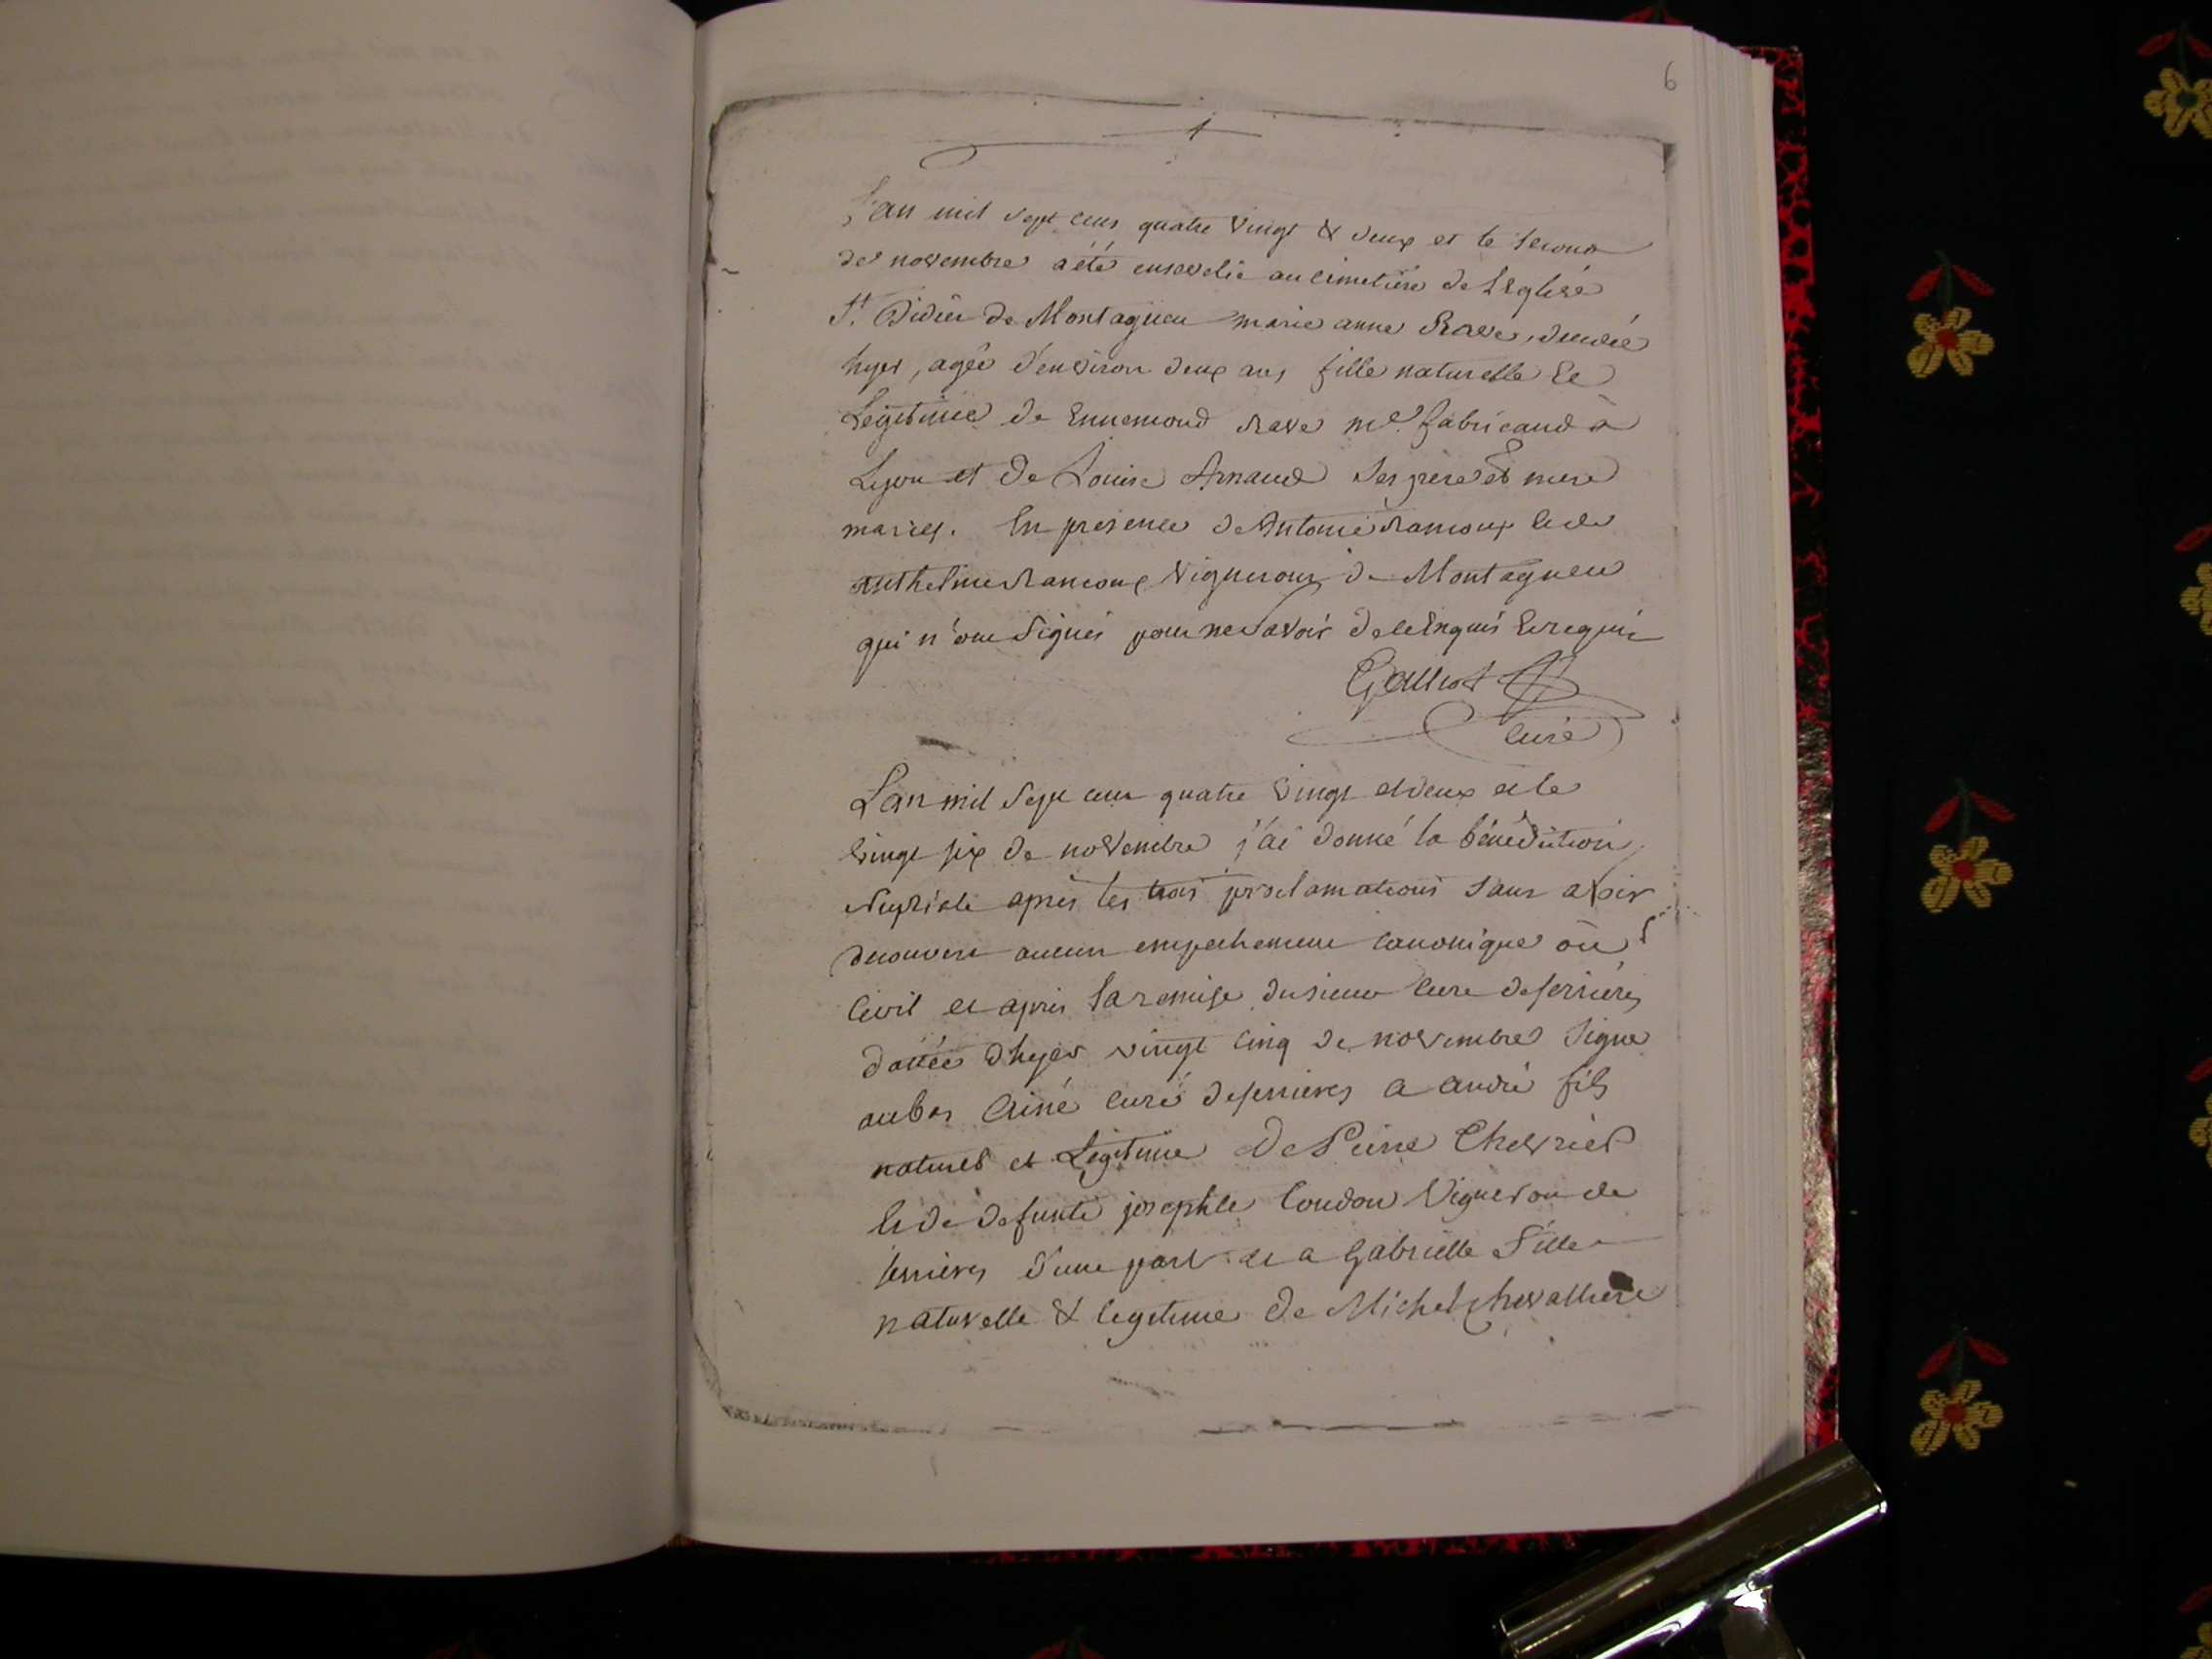 6
L'an mil sept cens quatre vingt & deux et le second
de novembre a été ensevelie au cimetière de L'Eglise
St. Didier de Montagneu marie anne Rave, decedée
hyer, agée d'environ deux ans fille naturelle &
Legitime de Ennemond rave md. fabricand à
Lyon et de Louise Arnaud ses père et mere
mariés. En presence de Antoine ramoux et de
anthelme ramoux vignerons de Montagneu
qui n'ont signés pour ne savoir de ce Enquis et requis
curé
L'an mil sept cens quatre vingt et deux et le
vingt six de novembre j'ai donné la bénédiction
nuptiale après les trois proclamations sans avoir
decouvert aucun empechement canonique où
civil et après la remise du sieur curé de serrières
dattée d'hyer vingt cinq de novembre signé
aubos curé de serrières a andré fils
naturel et Legitime de Pierre Chevrier
et de defunte josephte Coudon vigneron de
serrières d'une part et a gabrielle fille
naturelle & legitime de Michel chevalliere